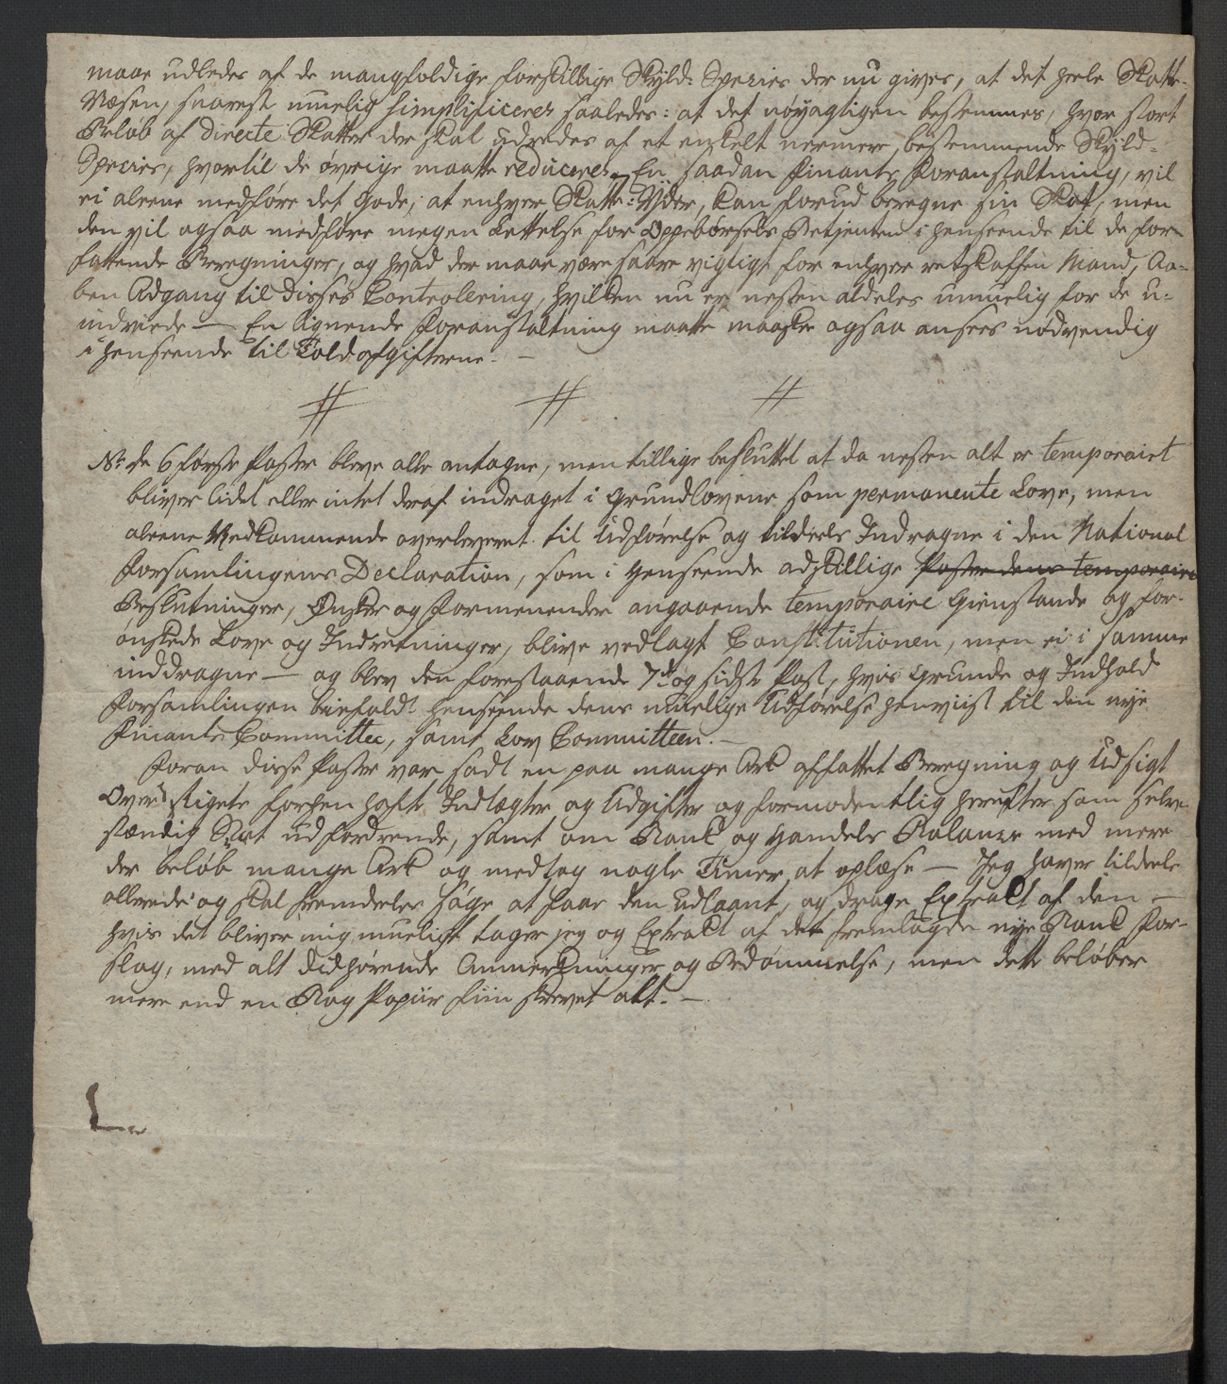 maae udledes af de mangfoldige forskillige Skyld-Species der nu gives, at det hele Skatte-
Væsen, snarest muelig simplificeres saaledes: at det nøyagtigen bestemmes, hvor stort
Beløb af directe Skatter der skal udredes af et enkelt nermere bestemmende Skyld-
Species, hvortil de øvrige maatte reduceres. En saadan Finants Foranstaltning, vil
ei aleene medføre det Gode, at enhver Skatte-Yder, kan forud beregne sin Skat, men
den vil ogsaa medføre megen Lettelse for Oppebørsels Betjenten i Henseende til de for-
fattende Beregninger, og hvad der maae være saare vigtigt for enhver retskaffen Mand, Aa-
ben Adgang til disses Controllering, hvilken nu er nesten aldeles umuelig for de u-
indviede — En lignende Foranstaltning maatte maaskee ogsaa ansees nødvendig
i Henseende til Toldafgifterne. —
# # #
N: de 6 første Poster bleve alle antagne, men tillige besluttet at da nesten alt er temporairt
bliver lidet eller intet deraf indraget i Grundlovene som permanente Love, men
aleene Vedkommende overleveret til Udførelse og tildeels Indragne i den National
Forsamlingens Declaration, som i Henseende adskillige Poster dens temporaire
Beslutninger, Ønsker og Formeninder angaaende temporaire Gienstande og for-
ønskede Love og Indretninger, blive vedlagt Constitutionen, men ei i samme
inddragne — og blev den forestaaende 7de og sidste Post, hvis Grunde og Indhold
Forsamlingen biefaldt henseende dens muelige Udførelse henviist til den nye
Finants Committee, samt Lov Committeen. —
Foran disse Poster var sadt en paa mange Ark affattet Beregning og Udsigt
Over Rigets forhen hafte Indtægter og Udgifter og formodentlig herefter som selv-
stændig Stat udfordrende, samt om Bank og Handels Balance med mere
der beløb mange Ark og medtog nogle Timer at oplæse — Jeg haver tildeels
allerede og skal fremdeeles søge at faae den udlaant, og drage Extrakt af den —
hvis det bliver mig mueligt tager jeg og Extrakt af det fremlagde nye Bank For-
slag, med alt didhørende Anmerkninger og Bedømmelse, men dette beløber
mere end en Bog Papiir fiin skrevet alt. —